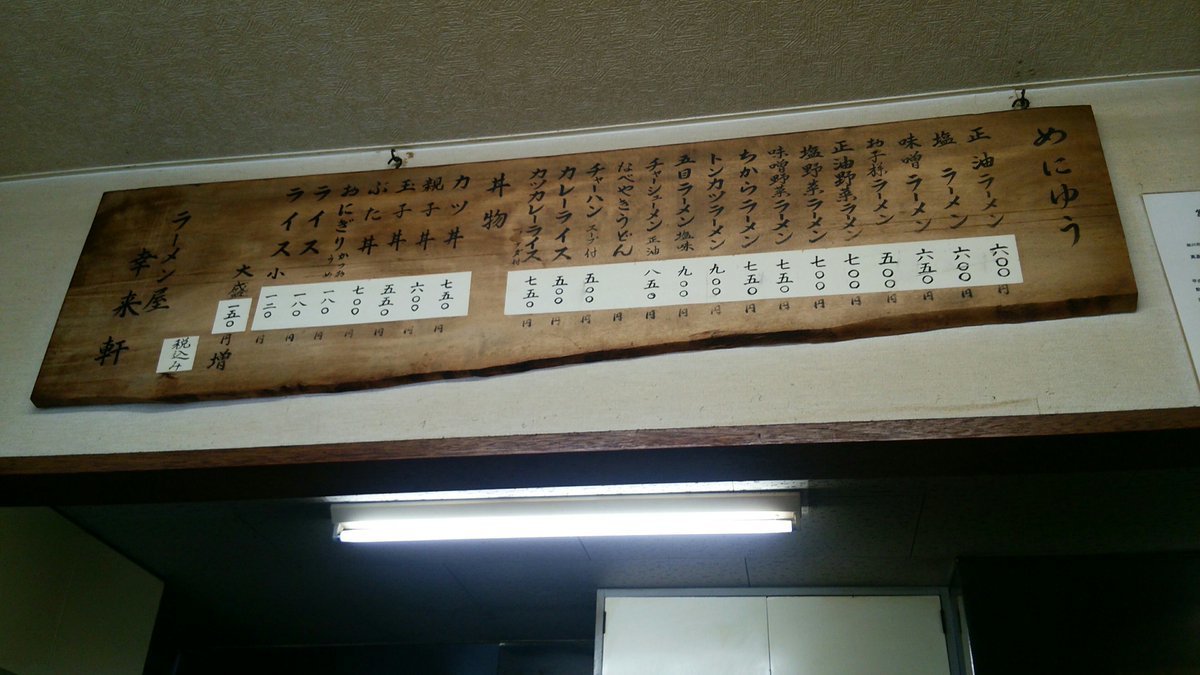 めにゆう
正油ラーメン 六〇〇円
塩ラーメン 六〇〇円
味噌ラーメン 六五〇円
お子様ラーメン 五〇〇円
正油野菜ラーメン 七〇〇円
塩野菜ラーメン 七〇〇円
味噌野菜ラーメン 七五〇円
ちからラーメン 七五〇円
トンカツラーメン 九〇〇円
五目ラーメン 塩味 九〇〇円
チャーシューメン 正油 八五〇円
なべやきうどん 円
チャーハン スープ付 五〇〇円
カレーライス 五〇〇円
カツカレーライス 七五〇円
丼物
カツ丼 七五〇円
親子丼 六〇〇円
玉子丼 五五〇円
ぶた丼 七〇〇円
おにぎり かつお うめ 一八〇円
ライス 一八〇円
ライス小 一二〇円
大盛 一五〇円増
税込み
ラーメン屋
幸来軒